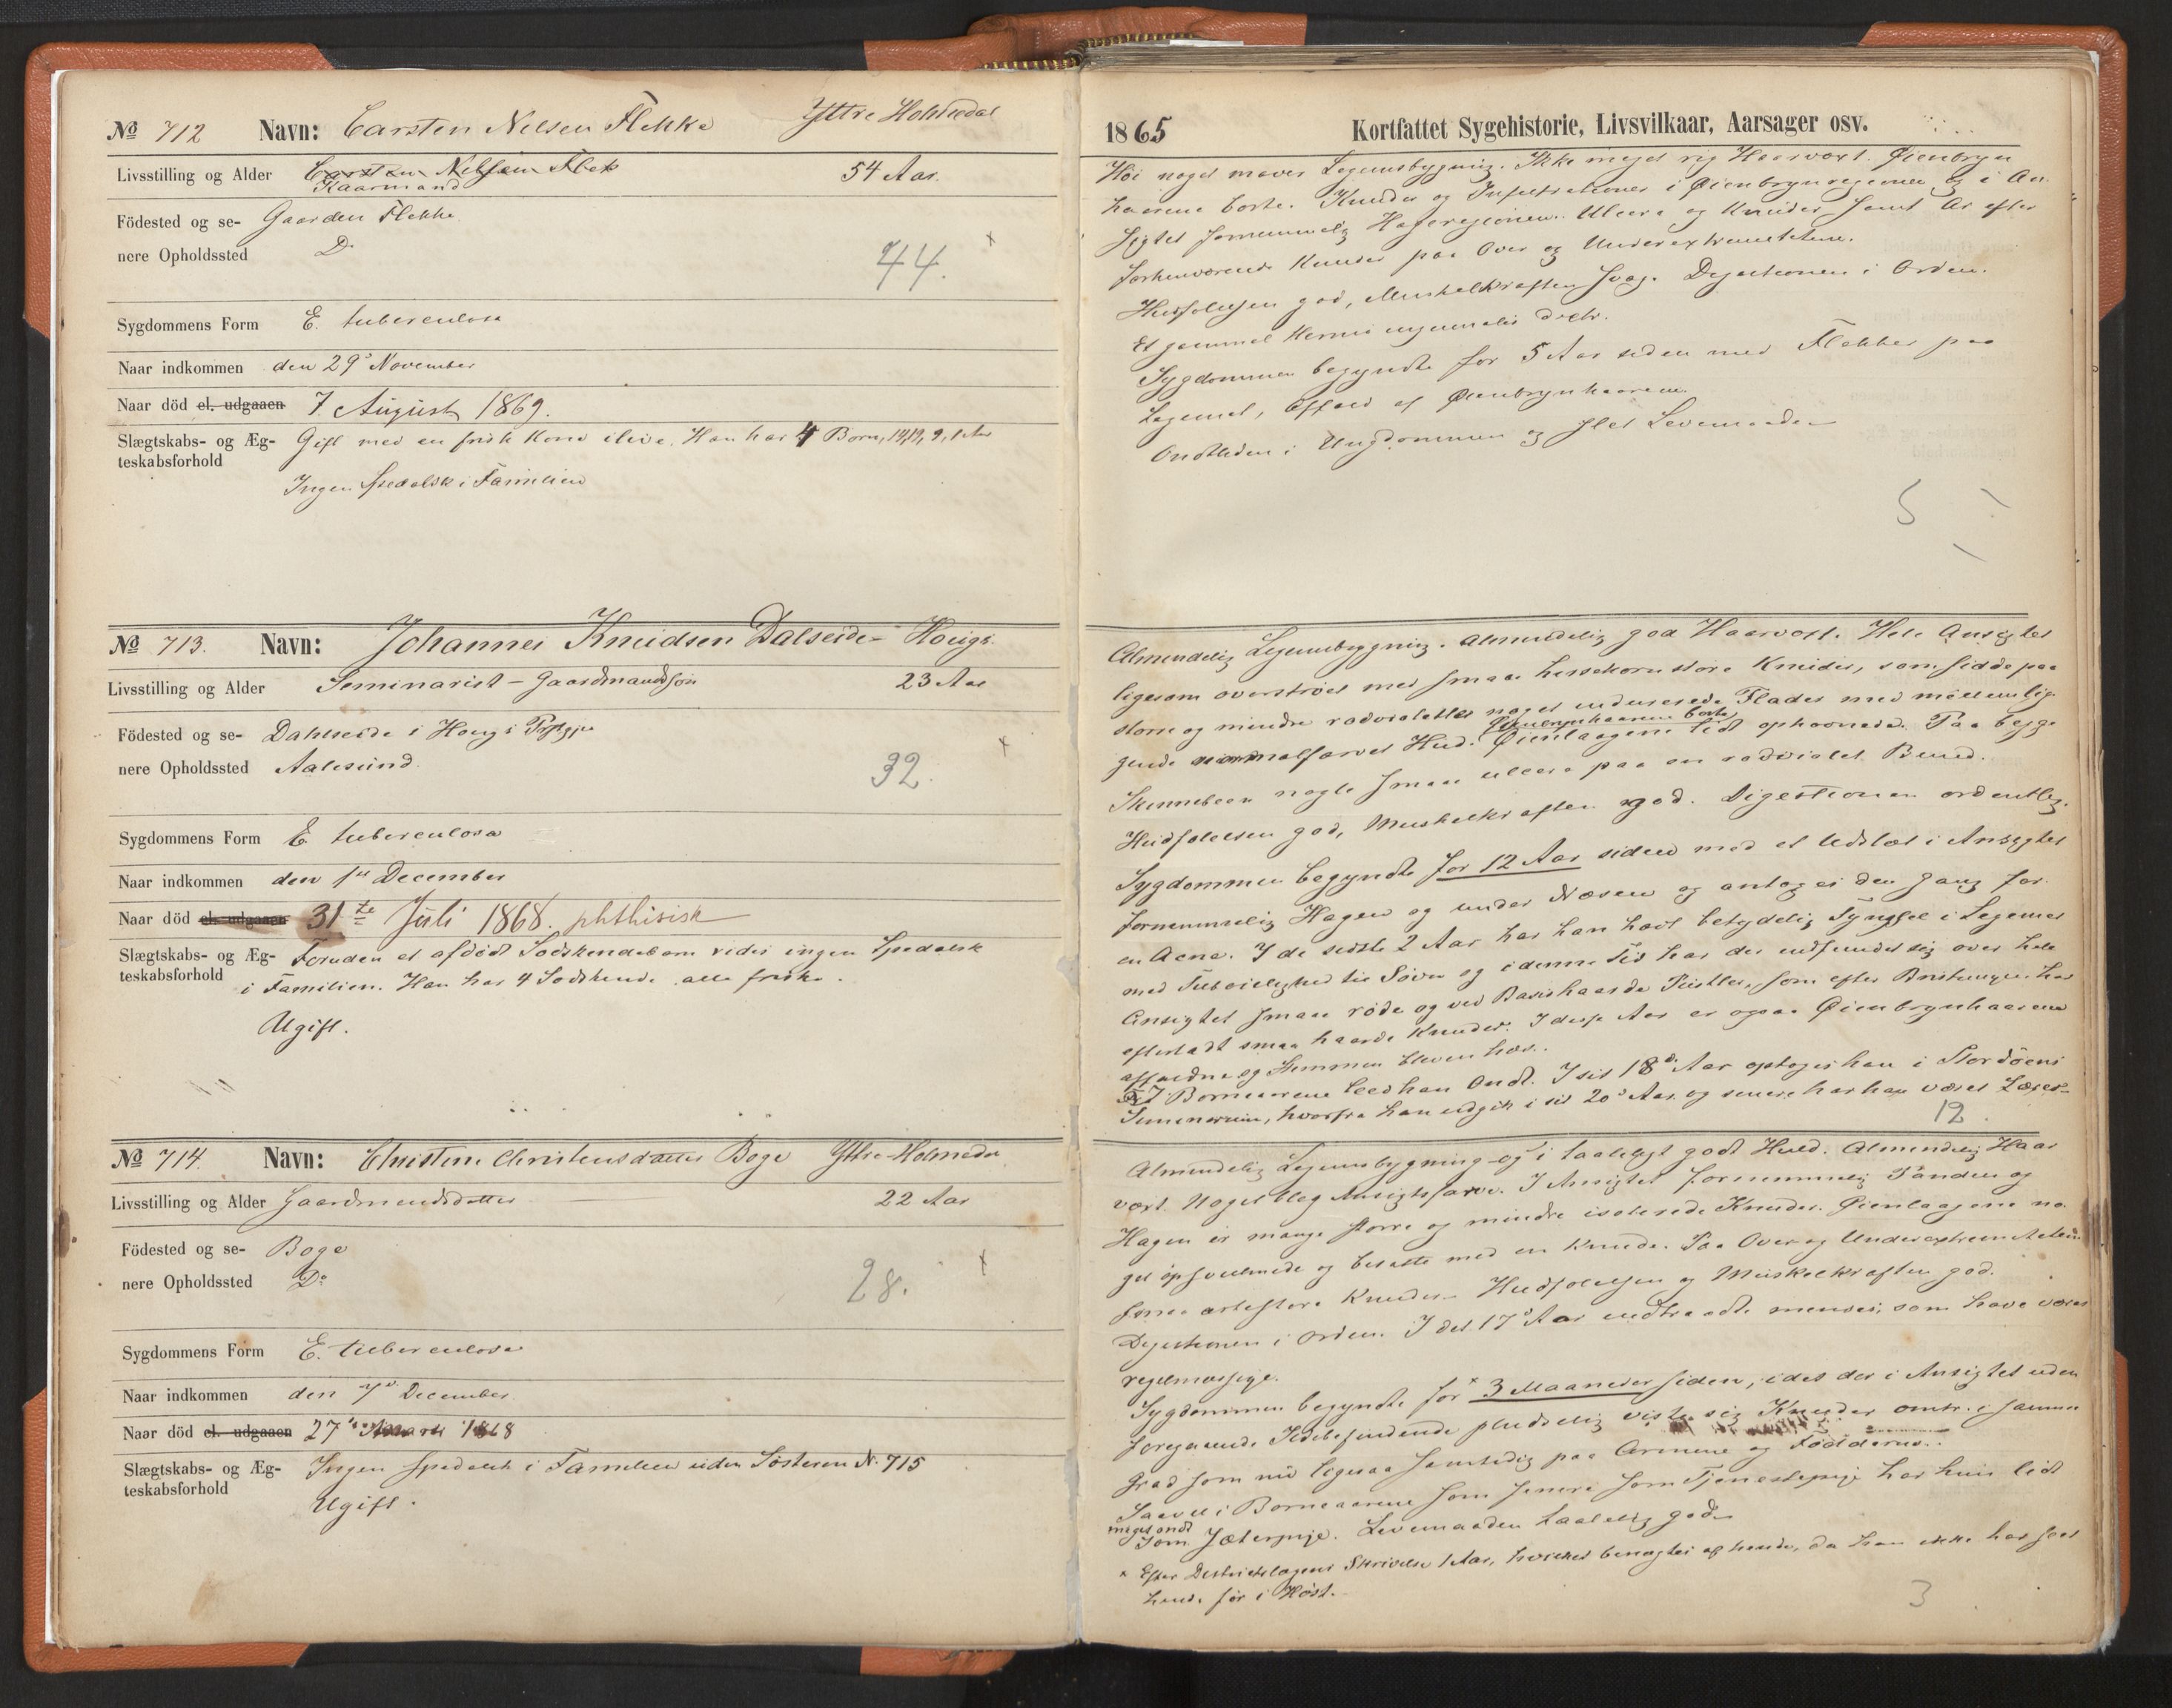 No 712 Navn: Carsten Nilsen Flekke Yttre Holmedal
Livsstilling og Alder Carsten Nilsen Flek 54 Aar.
Kaarmand
Födested og se- Gaarden Flekke
nere Opholdssted Do
44. x
Sygdommens Form E. tuberculosa
Naar indkommen den 29de November
Naar död el. udgaaen 7 August 1869.
Slægtskabs- og Æg- Gift med en frisk Kone ilive. Han har 4 Born, 9, 1 Aar
teskabsforhold
Ingen spedalsk i Familien
No 713. Navn: Johannes Knudsen Dalseide Hougs
Livsstilling og Alder Seminarist - Gaardmandssön 23 Aar
Födested og se- Dahlseide i Hougs Prstgjd
nere Opholdssted Aalesund
32. x
Sygdommens Form E tuberculosa
Naar indkommen den 1ste December
Naar död el. udgaaen 31te Juli 1868. phthisisk
Slægtskabs- og Æg- Foruden et afdödt Södskendebarn vides ingen Spedalsk
teskabsforhold i Familien. Han har 4 Södskende alle friske.
Ugift.
No 714. Navn: Christine Christensdatter Boge Yttre-Holmedal
Livsstilling og Alder Gaardmandsdatter 22 Aar
Födested og se- Boge
nere Opholdssted Do
28. x
Sygdommens Form E. tuberculosa
Naar indkommen den 7de December.
Naar död el. udgaaen 27de Marts 1868
Slægtskabs- og Æg- Ingen spedalsk i Familien uden Sösteren N. 715
teskabsforhold
Ugift.
1865 Kortfattet Sygehistorie, Livsvilkaar, Aarsager osv.
Höi noget maver Legemsbygning. Ikke meget rig Haarvæxt. Öienbryn
haarene borte. Knuder og Infiltrationer i Öienbrynregionen og i An
sigtet fornemmelig Hageregionen. Ulcera og Knuder samt Ar efter
forhenværende Knuder paa Over og Underextremiteterne.
Hudfölelsen god, Muskelkraften svag. Digestionen i Orden.
Et gammel Hernie inguinalis dextr.
Sygdommen begyndte for 5 Aar siden med Flekker paa
Legemet, Affald af Öienbrynhaarene.
Ondtliden i Ungdommen og slet Levemaade
5
Almindelig Legemsbygning. Almindelig god Haarvæxt. Hele Ansigtet
ligesom overströet med smaa hirsekornstore Knuder, som sidde paa
störe og mindre rödviolette noget indurerede Flader med mellemlig
Öienbrynhaarene borte
gende normalfarvet Hud. Öienlaagene lidt ophovnede. Paa begge
Skinneben nogle smaa ulcera paa en rödviolet Bund.
Hudfölelsen god, Muskelkraften god. Digestionen ordentlig.
Sygdommen begyndte for 12 Aar siden med et Udslæt i Ansigtet
fornemmelig Hagen og under Næsen og antoges den Gang for
en Acne. I de sidste 2 Aar har han havt betydelig Tyngsel i Legemet
med Tilböielighed til Sövn og i denne Tid har der indfundet sig over hele
Ansigtet smaa röde og ved Basis haarde Pustler, som efter Bristningen har
efterladt smaa haarde Knuder. I disse Aar er ogsaa Öienbrynhaarene
affaldne og Stemmen bleven hæs.
I Barneaarene leed han Ondt. I sit 18de Aar optoges han i Stordöens
Seminarium, hvorfra han udgik i sit 20de Aar og senere har han været Lærer
12.
Almindelig Legemsbygning og i taaleligt godt Huld. Almindelig Haar
væxt. Noget bleg Ansigtsfarve. I Ansigtet fornemmelig Panden og
Hagen er mange större og mindre isolerede Knuder. Öienlaagene no
get opsvulmede og besatte med en Knude. Paa Over og Underextremiteterne
smaa ertestore Knuder. Hudfölelsen og Muskelkraften god.
Digestionen i Orden. I det 17de Aar indtraadte menses, som have været
regelmæssige.
Sygdommen begyndte for x 3 Maaneder siden, idet der i Ansigtet uden
foregaaende Ildebefindende pludselig viste sig Knuder omtr. i samme
Grad som nu ligesaa samtidig paa Armene og Födderne.
Saavel i Barneaarene som senere som Tjenestepige har hun lidt
meget ondt
som Gjæterpige. Levemaaden taalelig god.
x Efter Districtslægens Skrivelse 1 Aar, hvilket benægtes af hende, da han ikke har seet
hende för i Höst.
3